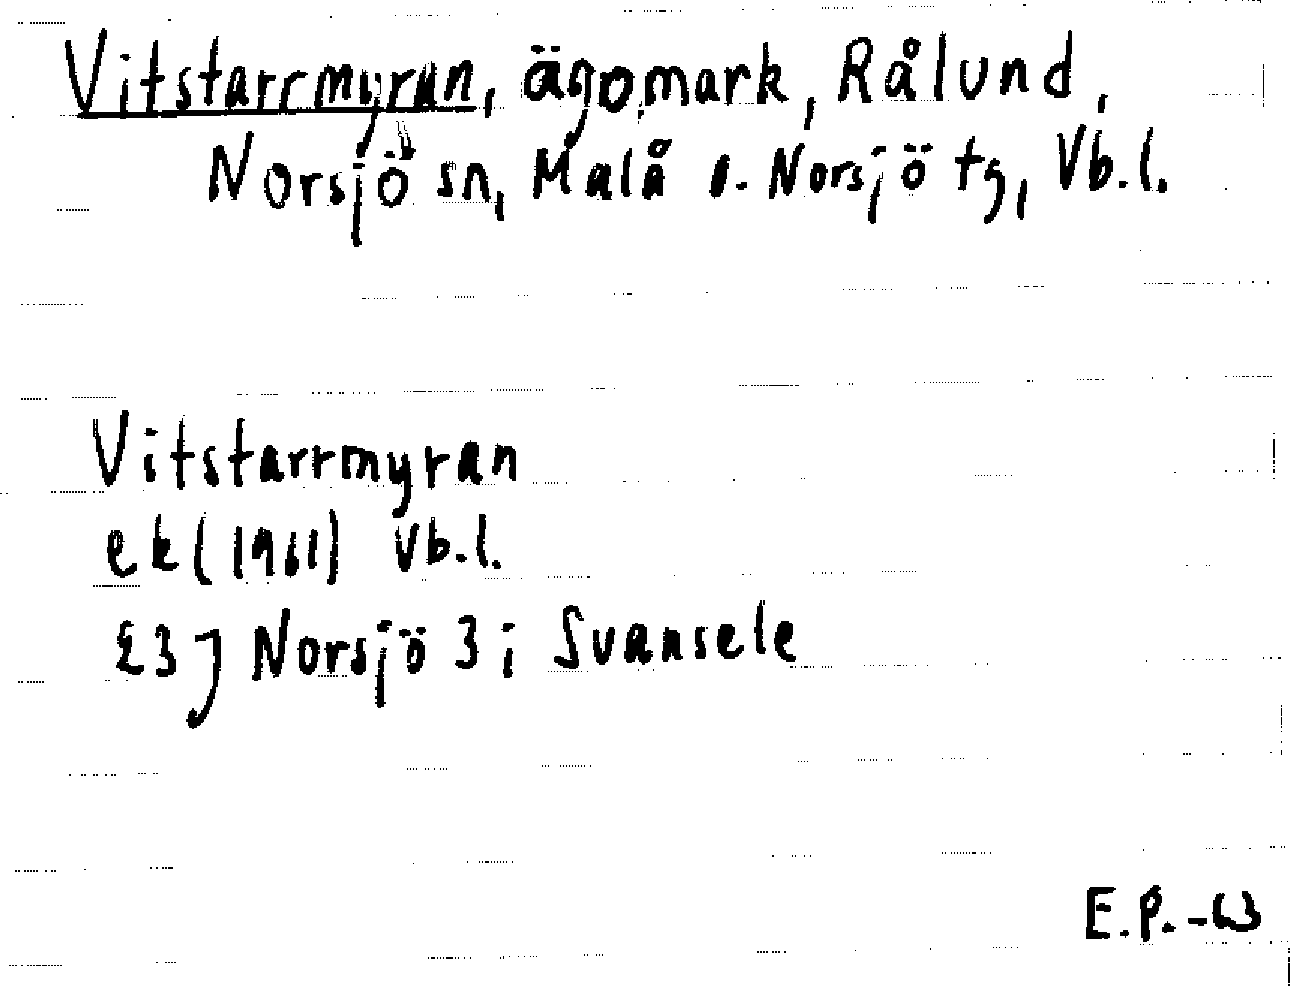 Vitstarrmyran, ägomark, Rålund,
Norsjö sn, Malå o. Norsjö tg, Vb.l.
Vitstarrmyran
ek (1961) Vb.l.
23J Norsjö 3 i Svansele
E.P.-W